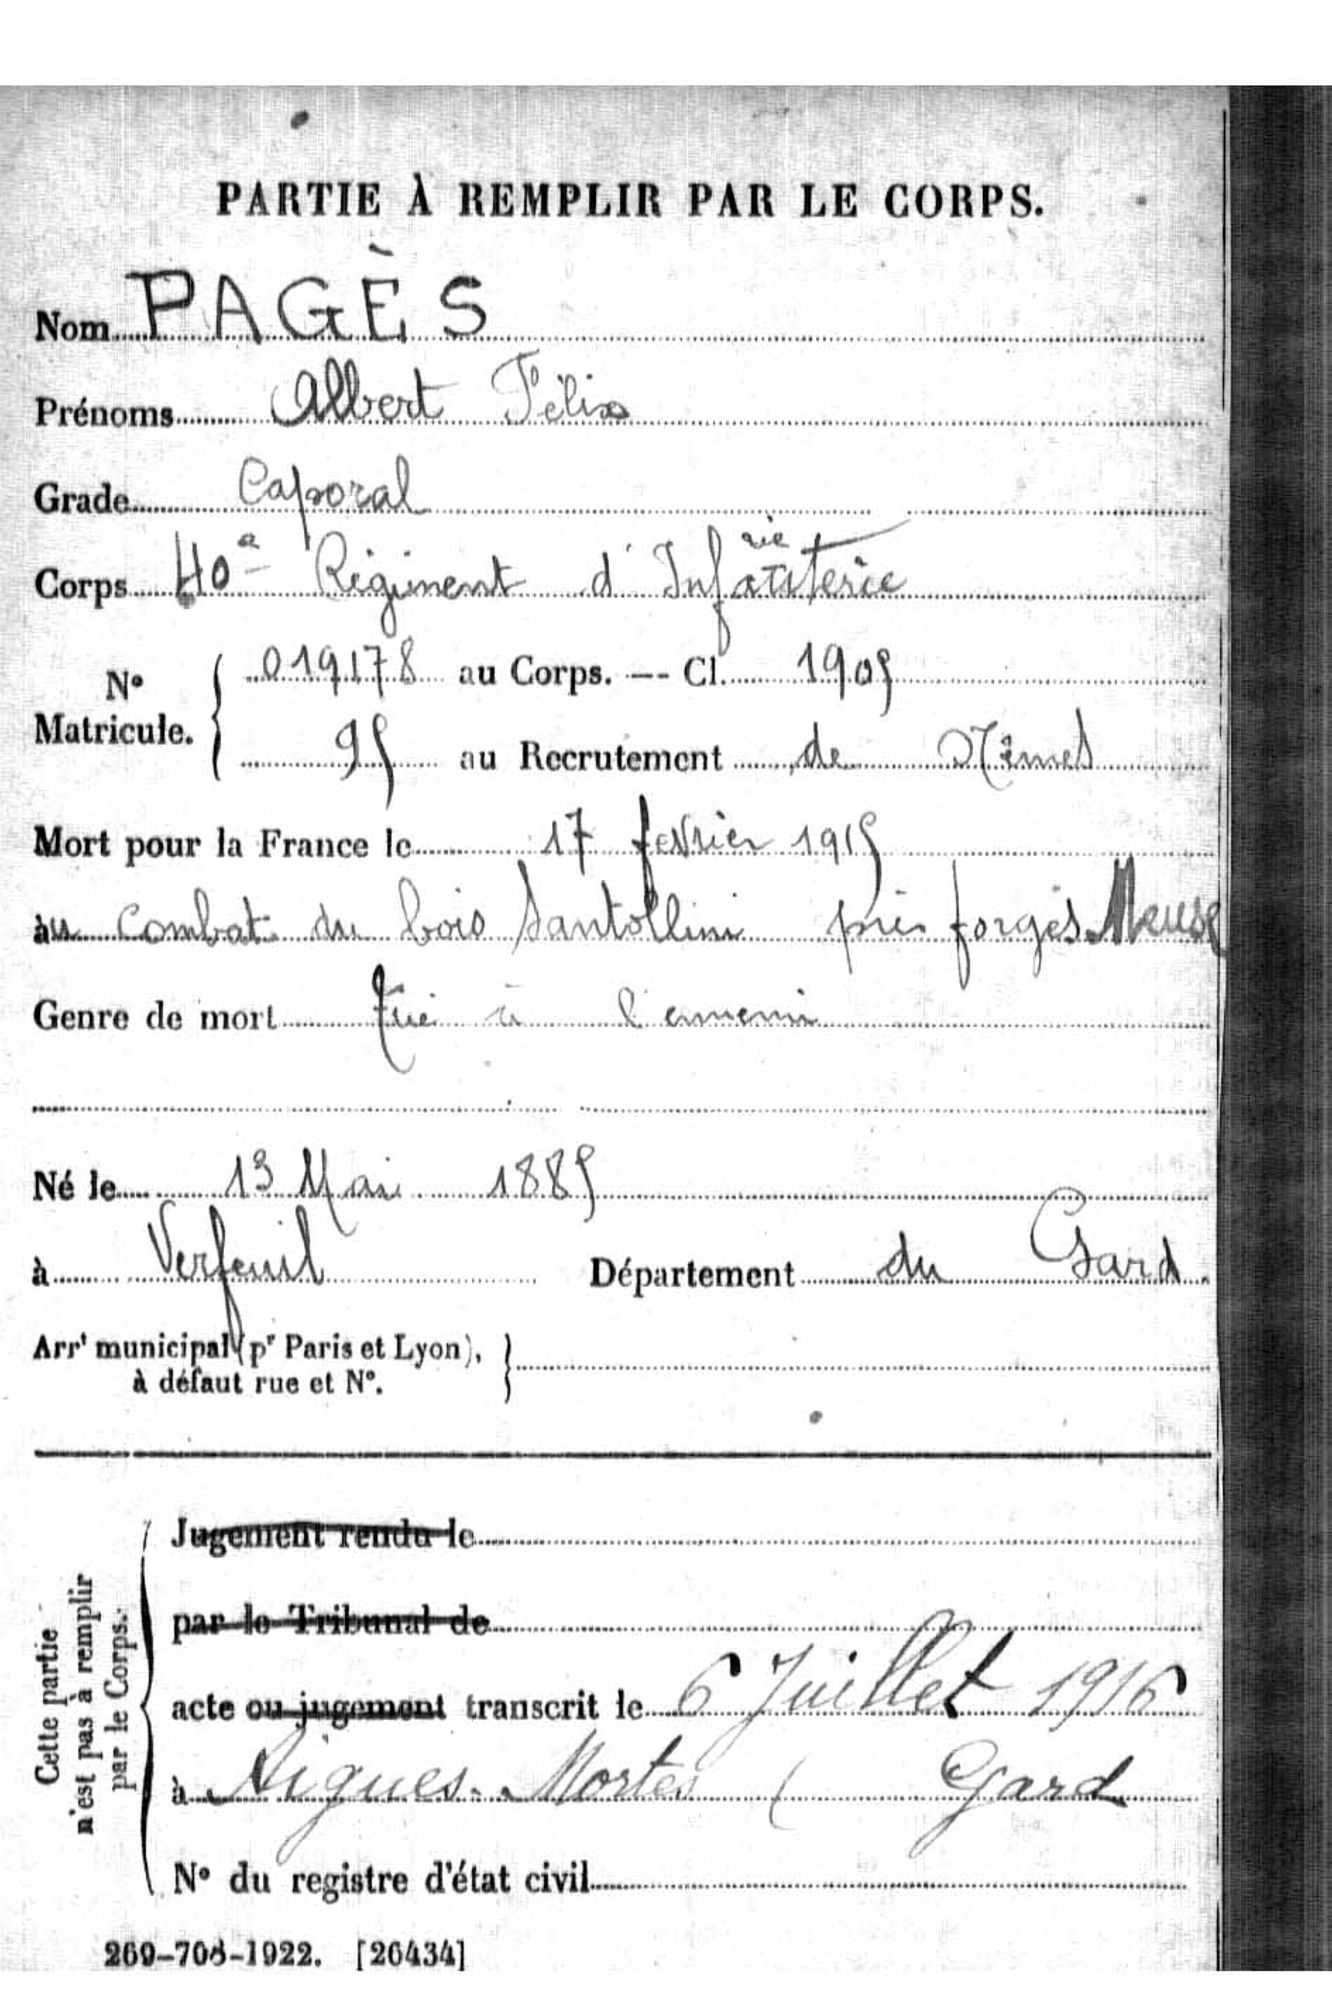 PARTIE À REMPLIR PAR LE CORPS.
Nom PAGÈS
Prénoms Albert Félix
Grade Caporal
Corps 40e Régiment d'Infanterie rie
N° Matricule. 019178 au Corps. — Cl. 1905
95 au Recrutement de Nîmes
Mort pour la France le 17 fevrier 1915
au combat du bois Santollini près forges Meuse
Genre de mort tué à l'ennemi
Né le 13 Mai 1885
à Verfeuil Département du Gard
Arrt municipal (pr Paris et Lyon),
à défaut rue et N°.
Cette partie
n'est pas à remplir
par le Corps.
Jugement rendu le
par le Tribunal de
acte ou jugement transcrit le 6 Juillet 1916
à Aigues-Mortes ( Gard
N° du registre d'état civil
269-708-1922. [26434]